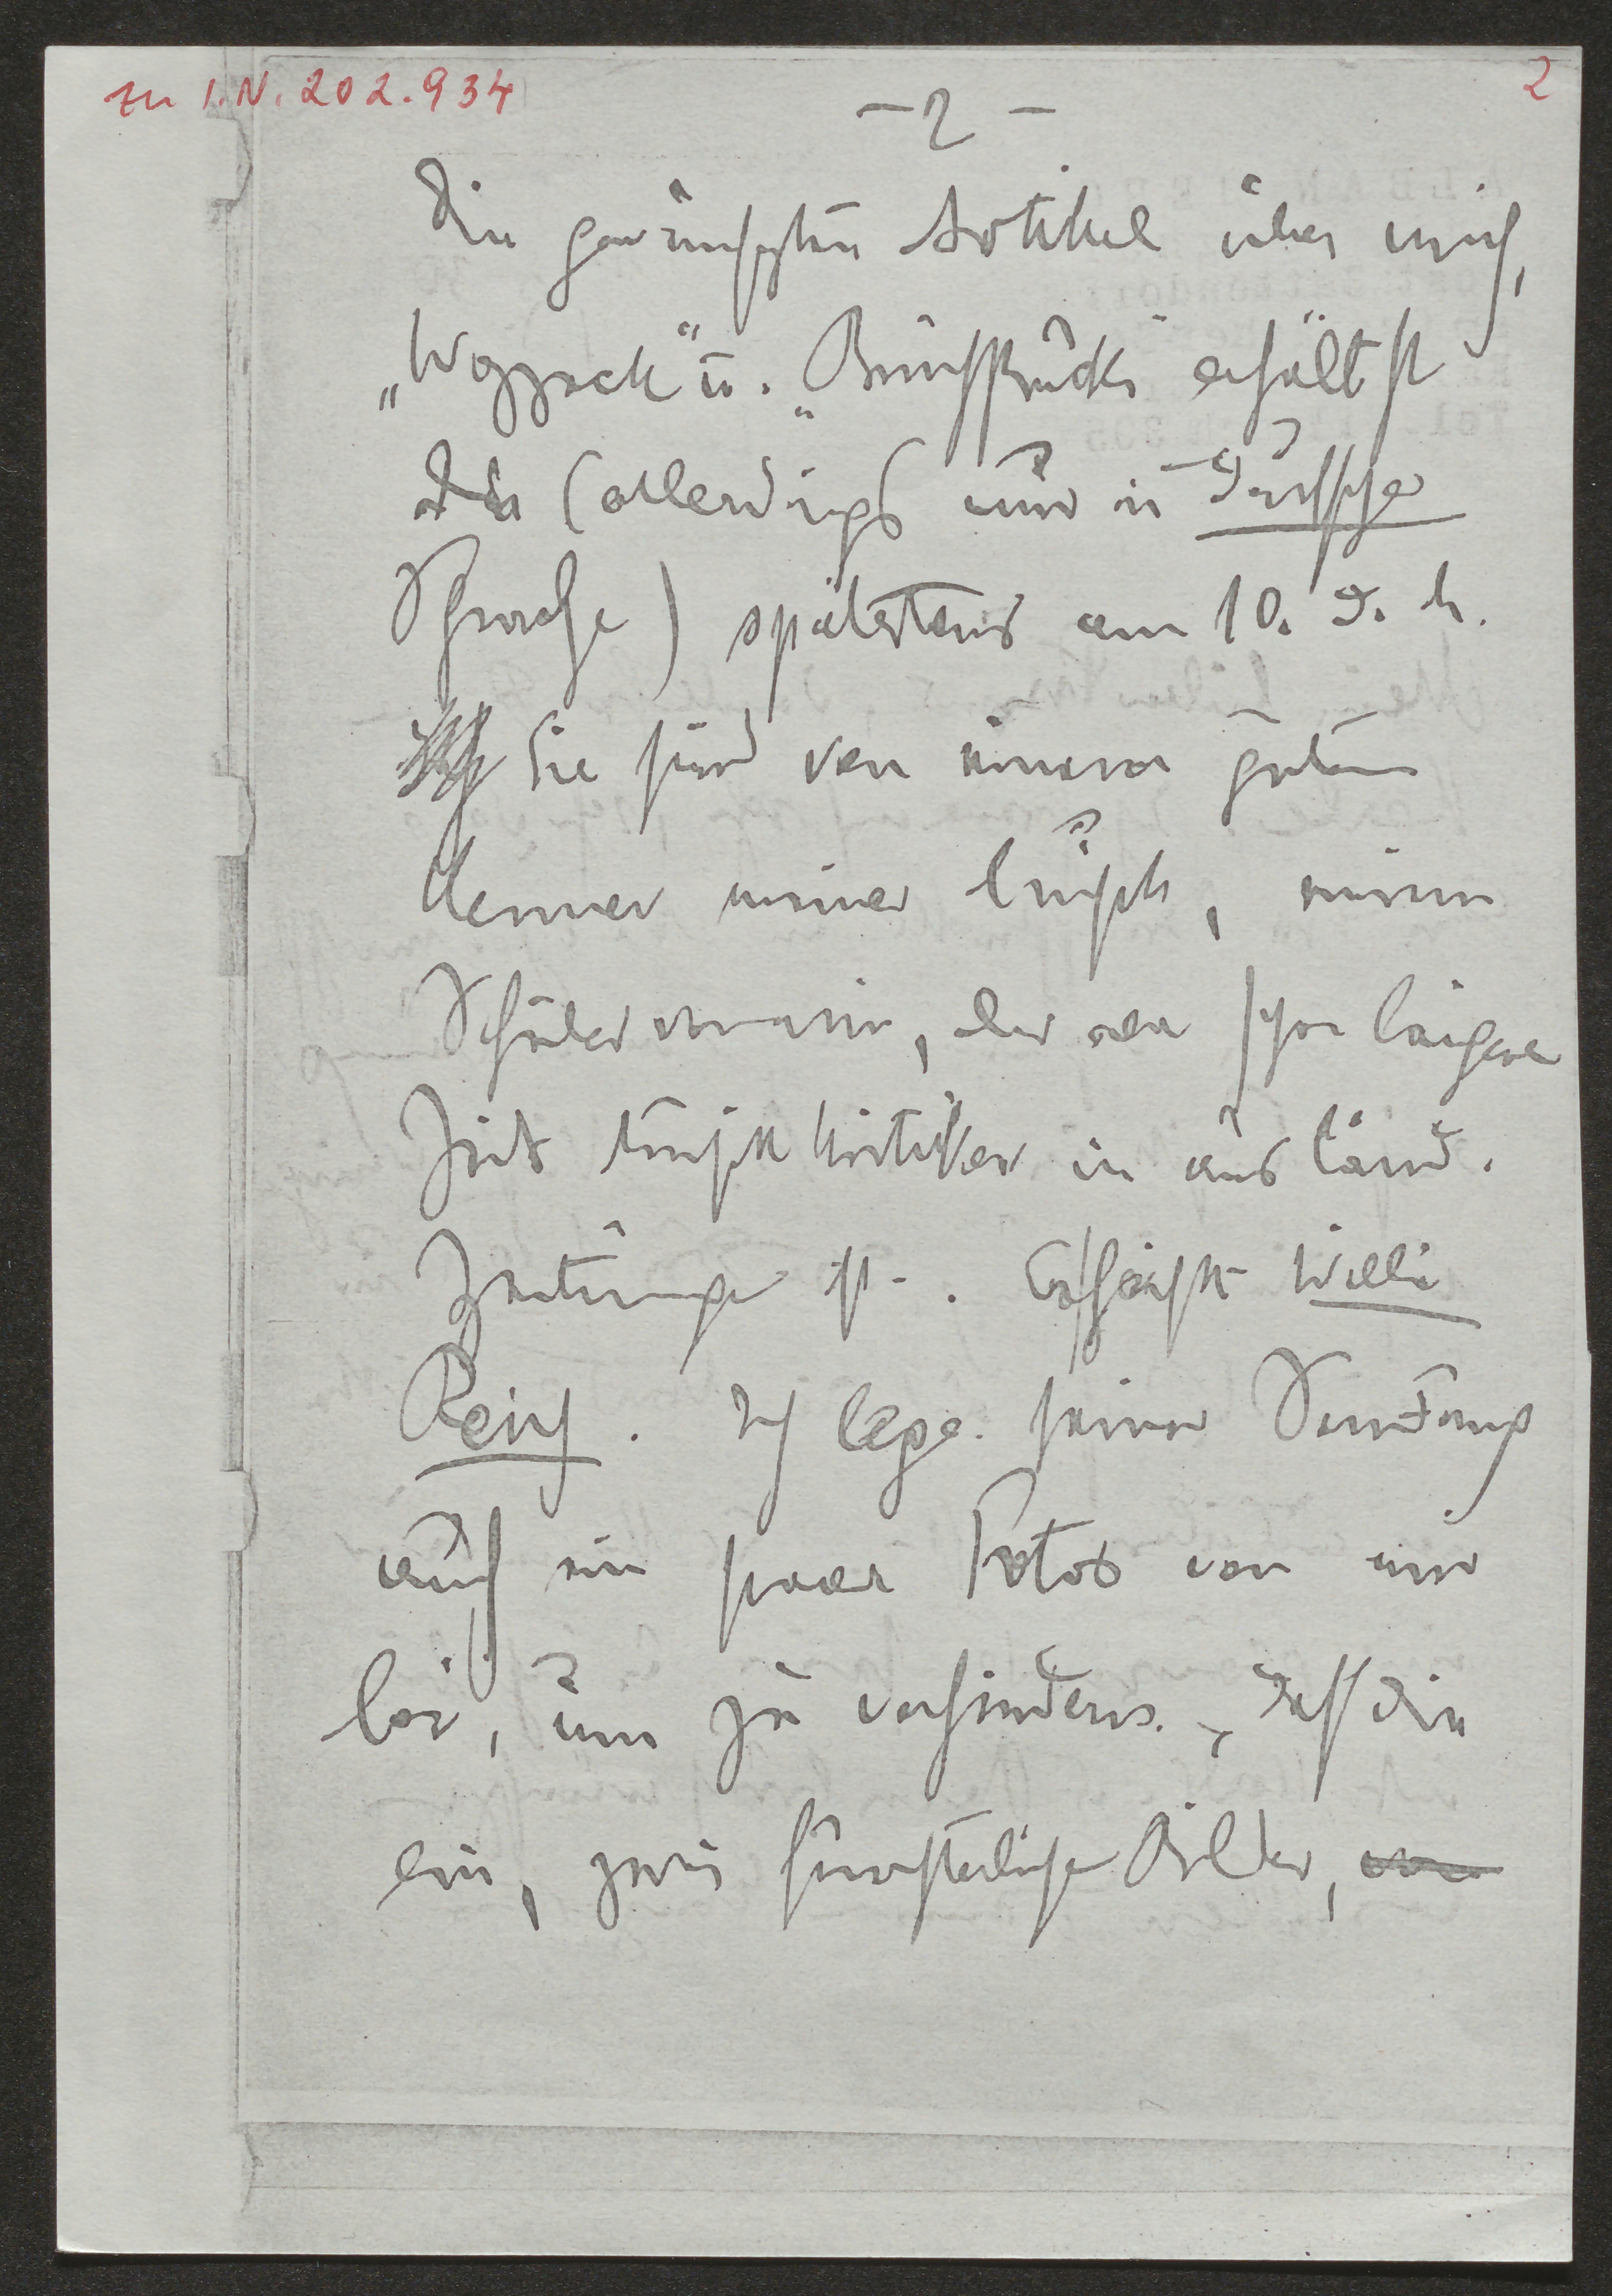 zu I.N. 202.934
2
- 2 -
Die gewünschten Artikel über mich,
„Wozzeck" u. „Bruchstücke" erhältst
du (allerdings nur in deutscher
Sprache) spätestens am 10. d. M.
Sie sind von einem guten
Kenner meiner Musik, einem
Schüler von mir, der schon längere
Zeit Musikkritiker in ausländ.
Zeitungen ist. Er heißt Willi
Reich. Ich lege seiner Sendung
auch ein paar Fotos von mir
bei, um zu verhindern, daß die
ein, zwei fürchterlichen Bilder,